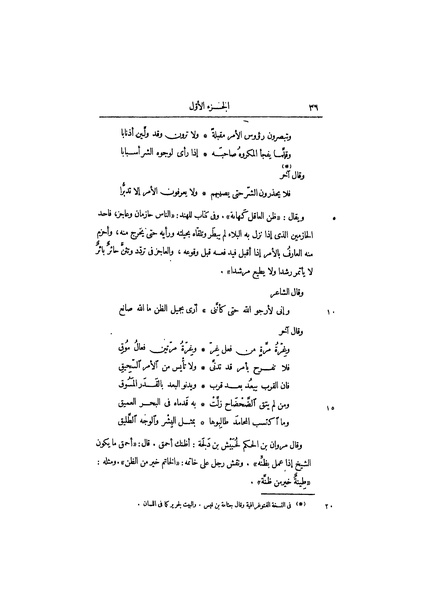 ٣٦ الجزء الأوّل
وتبصرون رؤوس الأمر مقبلة * ولا ترون وقد ولّين أذنابا
وقلّما يفجأ المكروه صاحبه * إذا رأى لوجوه الشر أسبابا
وقال آخر (*)
فلا يحذرون الشرّ حتى يصيبهم * ولا يعرفون الأمر إلا تدبّرا
٥ ويقال : «ظن العاقل كهانة» . وفى كتاب للهند: «الناس حازمان وعاجز، فأحد
الحازمين الذى إذا نزل به البلاء لم يبطَر وتلقّاه بحيلته ورأيه حتى يخرج منه، وأحزم
منه العارفُ بالأمر إذا أقبل فيدفعه قبل وقوعه ، والعاجز فى تردّد وتثنٍّ حائرٌ بائرٌ
لا يأتمر رشدا ولا يطيع مرشدا» .
وقال الشاعر
١٠ وإنى لأرجو الله حتى كأننى * أرى بجميل الظن ما الله صانع
وقال آخر
وغِرّةُ مرّةٍ من فعل غِرّ * وغِرّةُ مرّتين فعالُ مُوقِ
فلا تفرح بأمر قد تدنّى * ولا تأيس من الأمر السحيق
فان القرب يبعُد بعد قرب * ويدنو البعد بالقَدَر المَسُوق
١٥ ومن لم يتق الضَّحْضاح زلّت * به قدماه فى البحر العميق
وما اكتسب المحامدَ طالبوها * بمثل البِشر والوجه الطّلِيق
وقال مروان بن الحكم لحُبَيش بن دَلَجة : أظنك أحمق . قال: «أحمق ما يكون
الشيخ إذا عمل بظنّه» . ونقش رجل على خاتمه : «الخاتم خير من الظن» . ومثله :
«طينةٌ خير من ظنّة» .
٢٠ (*) فى النسخة الفتوغرافية وقال جثامة بن قيس . والبيت لجرير كما فى اللسان .